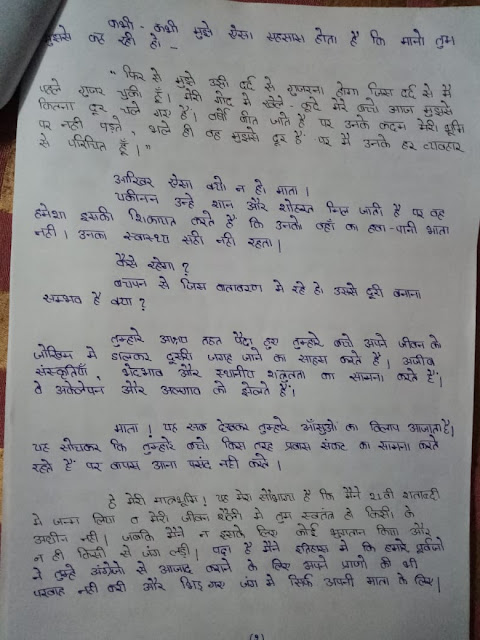 कभी - कभी मुझे ऐसा एहसास होता है कि मानो तुम
मुझसे कह रही हो। -
" फिर से मुझे उसी दर्द से गुजरना होगा जिस दर्द से मैं
पहले गुजर चुकी हूँ। मेरी गोद में खेले - कूदे मेरे बच्चे आज मुझसे
कितना दूर चले गए हैं। वर्षों बीत जाते हैं पर उनके कदम मेरी भूमि
पर नहीं पड़ते, भले ही वह मुझसे दूर हैं पर मैं उनके हर व्यवहार
से परिचित हूँ।"
आखिर ऐसा क्यों न हो माता।
यकीनन उन्हे शान और शोहरत मिल जाती है पर वह
हमेशा इसकी शिकायत करते हैं कि उनको वहाँ का हवा-पानी भाता
नही। उनका स्वास्थ्य सही नही रहता।
कैसे रहेगा ?
बचपन से जिस वातावरण में रहे हो उससे दूरी बनाना
सम्भव है क्या ?
तुम्हारे तहत पैदा हुए तुम्हारे बच्चे अपने जीवन को
जोखिम में डालकर दूसरी जगह जाने का साहस करते हैं। अजीब
संस्कृतियाँ, भेदभाव और स्थानीय शत्रुता का सामना करते हैं,
वे अकेलेपन और अलगाव को झेलते हैं।
माता ! यह सब देखकर तुम्हारे आँसुओं का विलाप आजाता है।
यह सोचकर कि तुम्हारे बच्चे किस तरह प्रवास संकट का सामना करते
रहते हैं पर वापस आना पसंद नही करते।
हे मेरी मातृभूमि ! यह मेरा सौभाग्य है कि मैंने 21वी शताब्दी
में जन्म लिया व मेरी जीवन शैली में तुम स्वतंत्र हो किसी के
अधीन नही। जबकि मैंने न इसके लिए कोई भुगतान किया और
न ही किसी से जंग लड़ी। पढ़ा है मैंने इतिहास में कि हमारे पूर्वजो
ने तुम्हे अंग्रेजो से आजाद कराने के लिए अपने प्राणो की भी
परवाह नही करी और भिड़ गए जंग में सिर्फ अपनी माता के लिए।